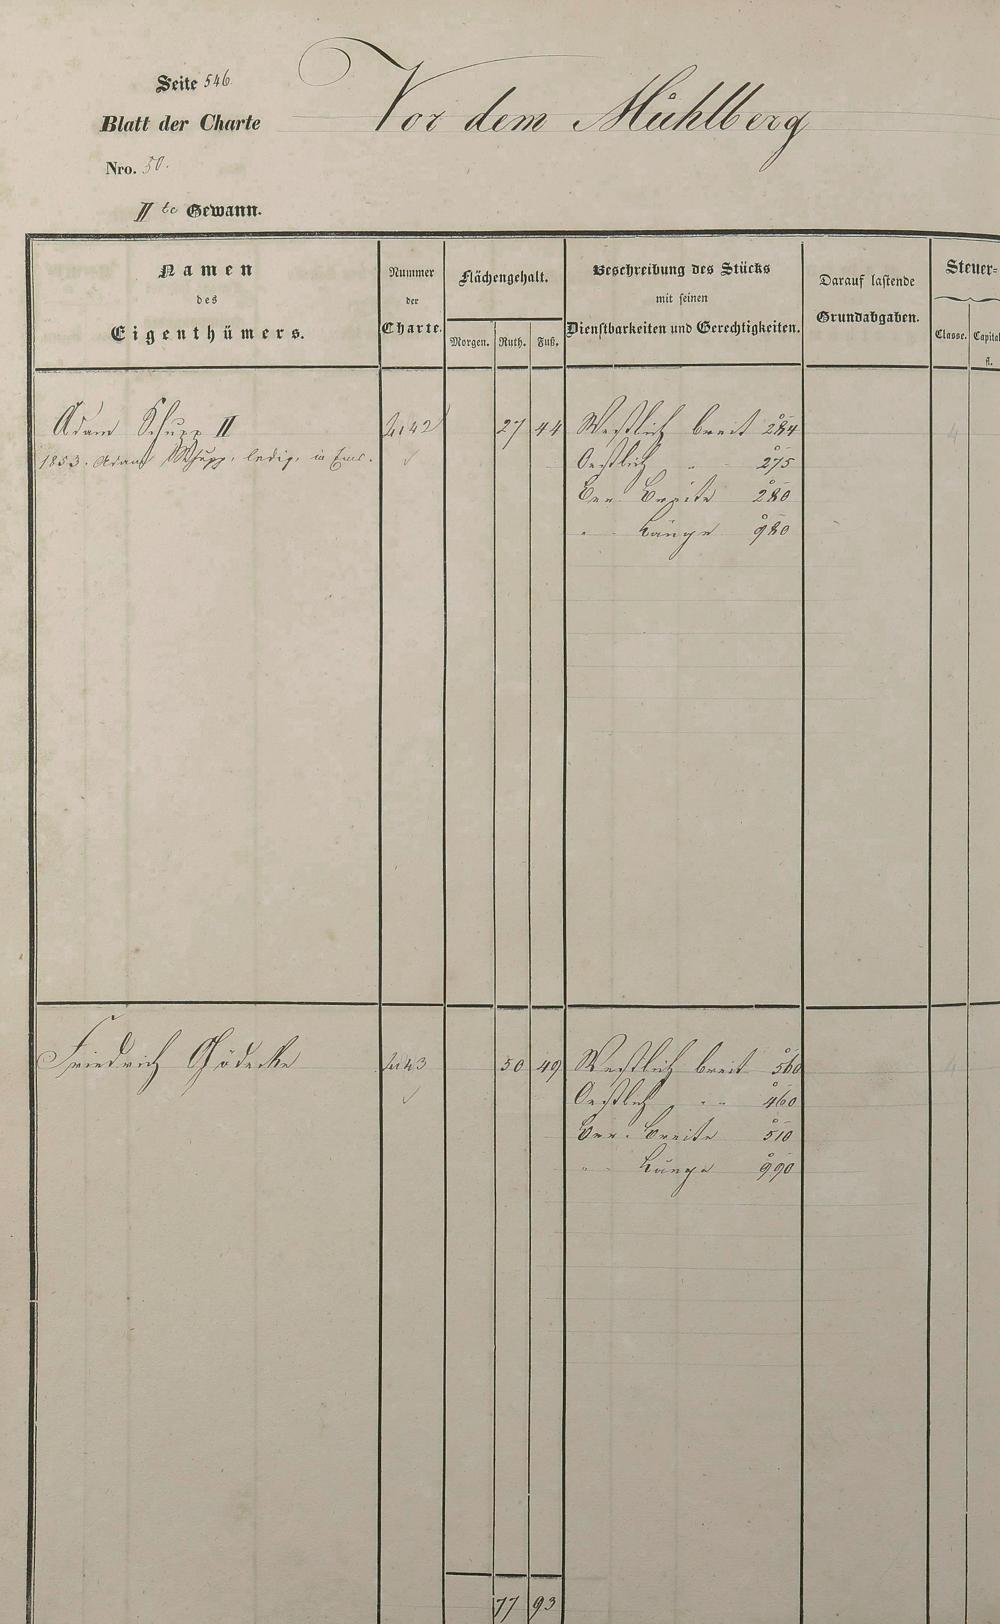 Seite 546.
Blatt der Charte
Nro. 50.
II te Gewann.
Vor dem Mühlberg
Namen
des
Eigenthümers.
Nummer
der
Charte.
Flächengehalt.
Morgen.
Ruth.
Fuß.
Beschreibung des Stücks
mit seinen
Dienstbarkeiten und Gerechtigkeiten.
Darauf lastende
Grundabgaben.
Steuer-
Classe.
Capital
fl.
Adam Schupp II
27 44
Westlich breit 284
1853. Adam Schupp, ledig, in Ems.
Oestlich " 275
Breite 280
" Länge 980
Friedrich Gödecke
50 49
Westlich breit 560
Oestlich " 460
Breite 510
" Länge 990
77 93